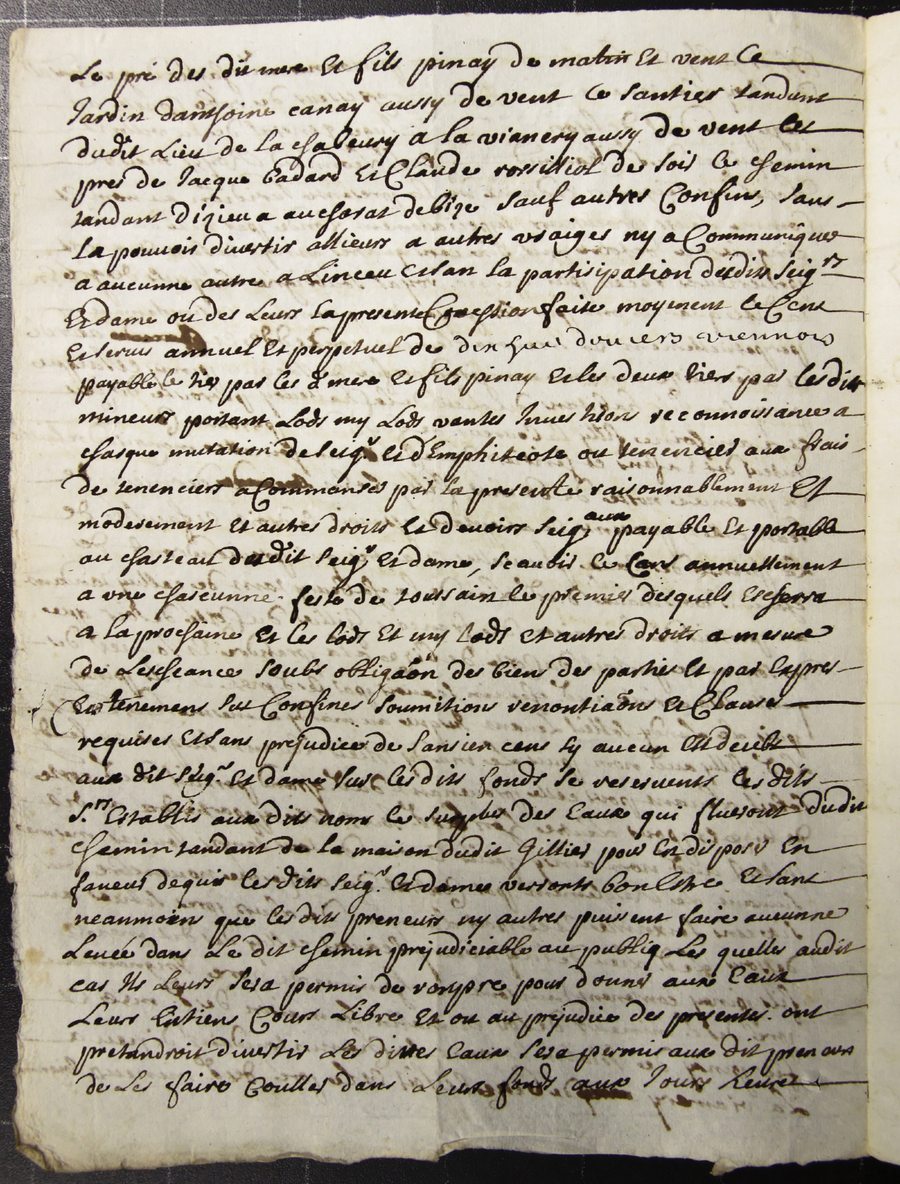 Le pré des dit mere et fils pinay de matin et vent le
Jardin danthoine canay aussy de vent le santier tandant
dudit Lieu de la chaleury a la vianery aussy de vent les
pres de Jacque badard et Claude rossilliol de soir le chemin
tandant d'izieu a auchorat debize sauf autres Confins, sans
La pouvoir divertir allieurs a autres usaiges ny a Communiquer
a aucunne autre a Linceu et san la partisipation desdits seigrs
Et dame ou des Leurs La presente faite moyenent le Cent
Et servis annuel Et perpetuel de deniers viennois
payable le tier par les dt mere et fils pinay et les deux tiers par lesdit
mineurs portant Lods my Lods ventes reconnoissance a
chasque mutation de seigr et d'Emphiteote ou tenencier aux frais
de tenenciers a Commenser par la presente raisonnablement Et
moderement et autres droits et devoirs seigaux payable et portable
au chasteau dudit seigr et dame, scavoir le Cens annuellement
a une chascunne feste de toussain le premier desquels et sera
a la prochaine et les lods et my lods et autres droits a mesure
de Lescheance soubs obligaon des bien des parties et par Expres
soumitions renontiaons et Clauses
requises et sans prejudice de Lansien cens sy aucun est deubt
aux dit seigr et dame sur lesdits fonds se reservents lesdits
sr Establis aux dits nom le surplus des Eaux qui flueront dudit
chemin tandant de la maison dudit Gillier pour en disposer En
faveur de qui lesdits seigr et dame verronts bon Estre et sant
neanmoins que lesdits preneurs ny autres puissent faire aucunne
Levée dans Le dit chemin prejudiciable au publiq Les quelles audit
cas Ils Leurs sera permis de rompre pour donner aux Eaux
Leurs Entiens Cours Libre et ou au prejudice des presentes ont
pretandroit divertir Les dittes Eaux sera permis aux dit preneurs
de Les faire Coulles dans Leurs fonds aux Jours heure